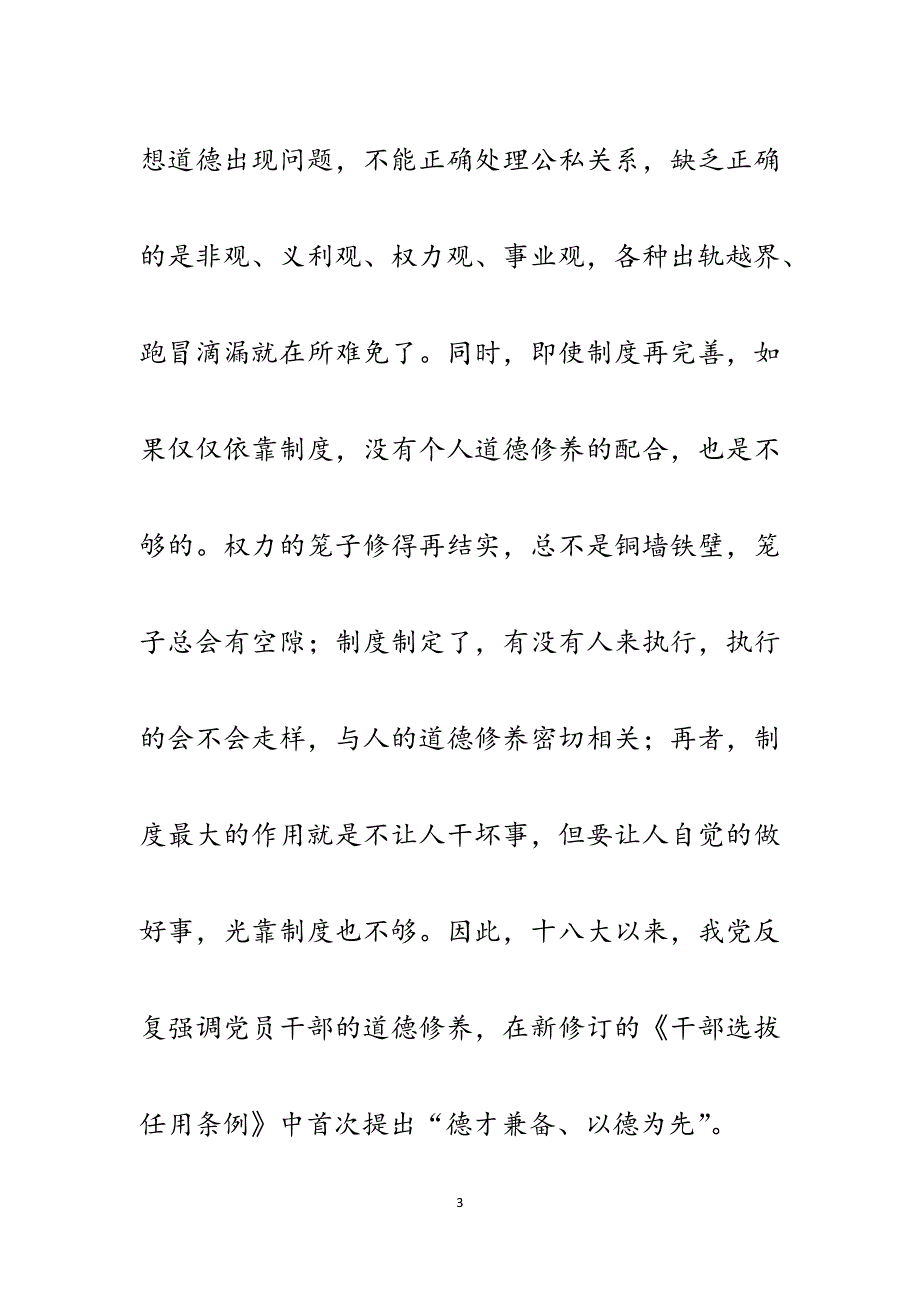 想道德出现问题，不能正确处理公私关系，缺乏正确
的是非观、义利观、权力观、事业观，各种出轨越界、
跑冒滴漏就在所难免了。同时，即使制度再完善，如
果仅仅依靠制度，没有个人道德修养的配合，也是不
够的。权力的笼子修得再结实，总不是铜墙铁壁，笼
子总会有空隙；制度制定了，有没有人来执行，执行
的会不会走样，与人的道德修养密切相关；再者，制
度最大的作用就是不让人干坏事，但要让人自觉的做
好事，光靠制度也不够。因此，十八大以来，我党反
复强调党员干部的道德修养，在新修订的《干部选拔
任用条例》中首次提出“德才兼备、以德为先”。
3